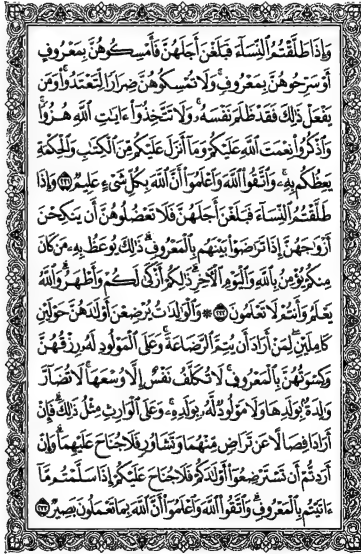 وَإِذَا طَلَّقْتُمُ ٱلنِّسَآءَ فَبَلَغْنَ أَجَلَهُنَّ فَأَمْسِكُوهُنَّ بِمَعْرُوفٍ
أَوْ سَرِّحُوهُنَّ بِمَعْرُوفٍ ۚ وَلَا تُمْسِكُوهُنَّ ضِرَارًا لِّتَعْتَدُوا۟ ۚ وَمَن
يَفْعَلْ ذَٰلِكَ فَقَدْ ظَلَمَ نَفْسَهُۥ ۚ وَلَا تَتَّخِذُوٓا۟ ءَايَٰتِ ٱللَّهِ هُزُوًا ۚ
وَٱذْكُرُوا۟ نِعْمَتَ ٱللَّهِ عَلَيْكُمْ وَمَآ أَنزَلَ عَلَيْكُم مِّنَ ٱلْكِتَٰبِ وَٱلْحِكْمَةِ
يَعِظُكُم بِهِۦ ۚ وَٱتَّقُوا۟ ٱللَّهَ وَٱعْلَمُوٓا۟ أَنَّ ٱللَّهَ بِكُلِّ شَىْءٍ عَلِيمٌ ﴿٢٣١﴾ وَإِذَا
طَلَّقْتُمُ ٱلنِّسَآءَ فَبَلَغْنَ أَجَلَهُنَّ فَلَا تَعْضُلُوهُنَّ أَن يَنكِحْنَ
أَزْوَٰجَهُنَّ إِذَا تَرَٰضَوْا۟ بَيْنَهُم بِٱلْمَعْرُوفِ ۗ ذَٰلِكَ يُوعَظُ بِهِۦ مَن كَانَ
مِنكُمْ يُؤْمِنُ بِٱللَّهِ وَٱلْيَوْمِ ٱلْءَاخِرِ ۗ ذَٰلِكُمْ أَزْكَىٰ لَكُمْ وَأَطْهَرُ ۗ وَٱللَّهُ
يَعْلَمُ وَأَنتُمْ لَا تَعْلَمُونَ ﴿٢٣٢﴾ ۞ وَٱلْوَٰلِدَٰتُ يُرْضِعْنَ أَوْلَٰدَهُنَّ حَوْلَيْنِ
كَامِلَيْنِ ۖ لِمَنْ أَرَادَ أَن يُتِمَّ ٱلرَّضَاعَةَ ۚ وَعَلَى ٱلْمَوْلُودِ لَهُۥ رِزْقُهُنَّ
وَكِسْوَتُهُنَّ بِٱلْمَعْرُوفِ ۚ لَا تُكَلَّفُ نَفْسٌ إِلَّا وُسْعَهَا ۚ لَا تُضَآرَّ
وَٰلِدَةٌۢ بِوَلَدِهَا وَلَا مَوْلُودٌ لَّهُۥ بِوَلَدِهِۦ ۚ وَعَلَى ٱلْوَارِثِ مِثْلُ ذَٰلِكَ ۗ فَإِنْ
أَرَادَا فِصَالًا عَن تَرَاضٍ مِّنْهُمَا وَتَشَاوُرٍ فَلَا جُنَاحَ عَلَيْهِمَا ۗ وَإِنْ
أَرَدتُّمْ أَن تَسْتَرْضِعُوٓا۟ أَوْلَٰدَكُمْ فَلَا جُنَاحَ عَلَيْكُمْ إِذَا سَلَّمْتُم مَّآ
ءَاتَيْتُم بِٱلْمَعْرُوفِ ۗ وَٱتَّقُوا۟ ٱللَّهَ وَٱعْلَمُوٓا۟ أَنَّ ٱللَّهَ بِمَا تَعْمَلُونَ بَصِيرٌ ﴿٢٣٣﴾